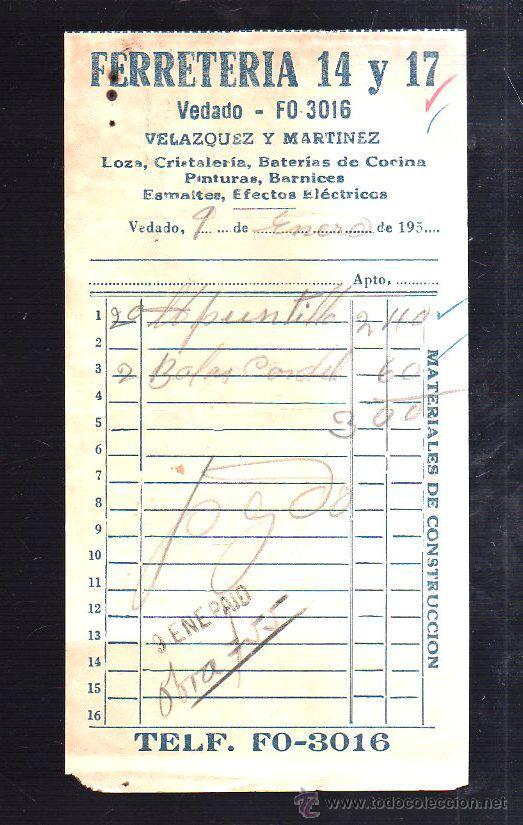 FERRETERIA 14 y 17
Vedado - FO-3016
VELAZQUEZ Y MARTINEZ
Loza, Cristalería, Baterías de Cocina
Pinturas, Barnices
Esmaltes, Efectos Eléctricos
Vedado, 9 de Enero de 195
Apto.
1 20 puntilla 2 40
2
3 2 Bolas Cordel 60
4
5 3 00
6
7
8
9
10
11
12
13
14
15
16
MATERIALES DE CONSTRUCCION
9 ENE PAID
Obra
TELF. FO-3016
www.todocoleccion.net